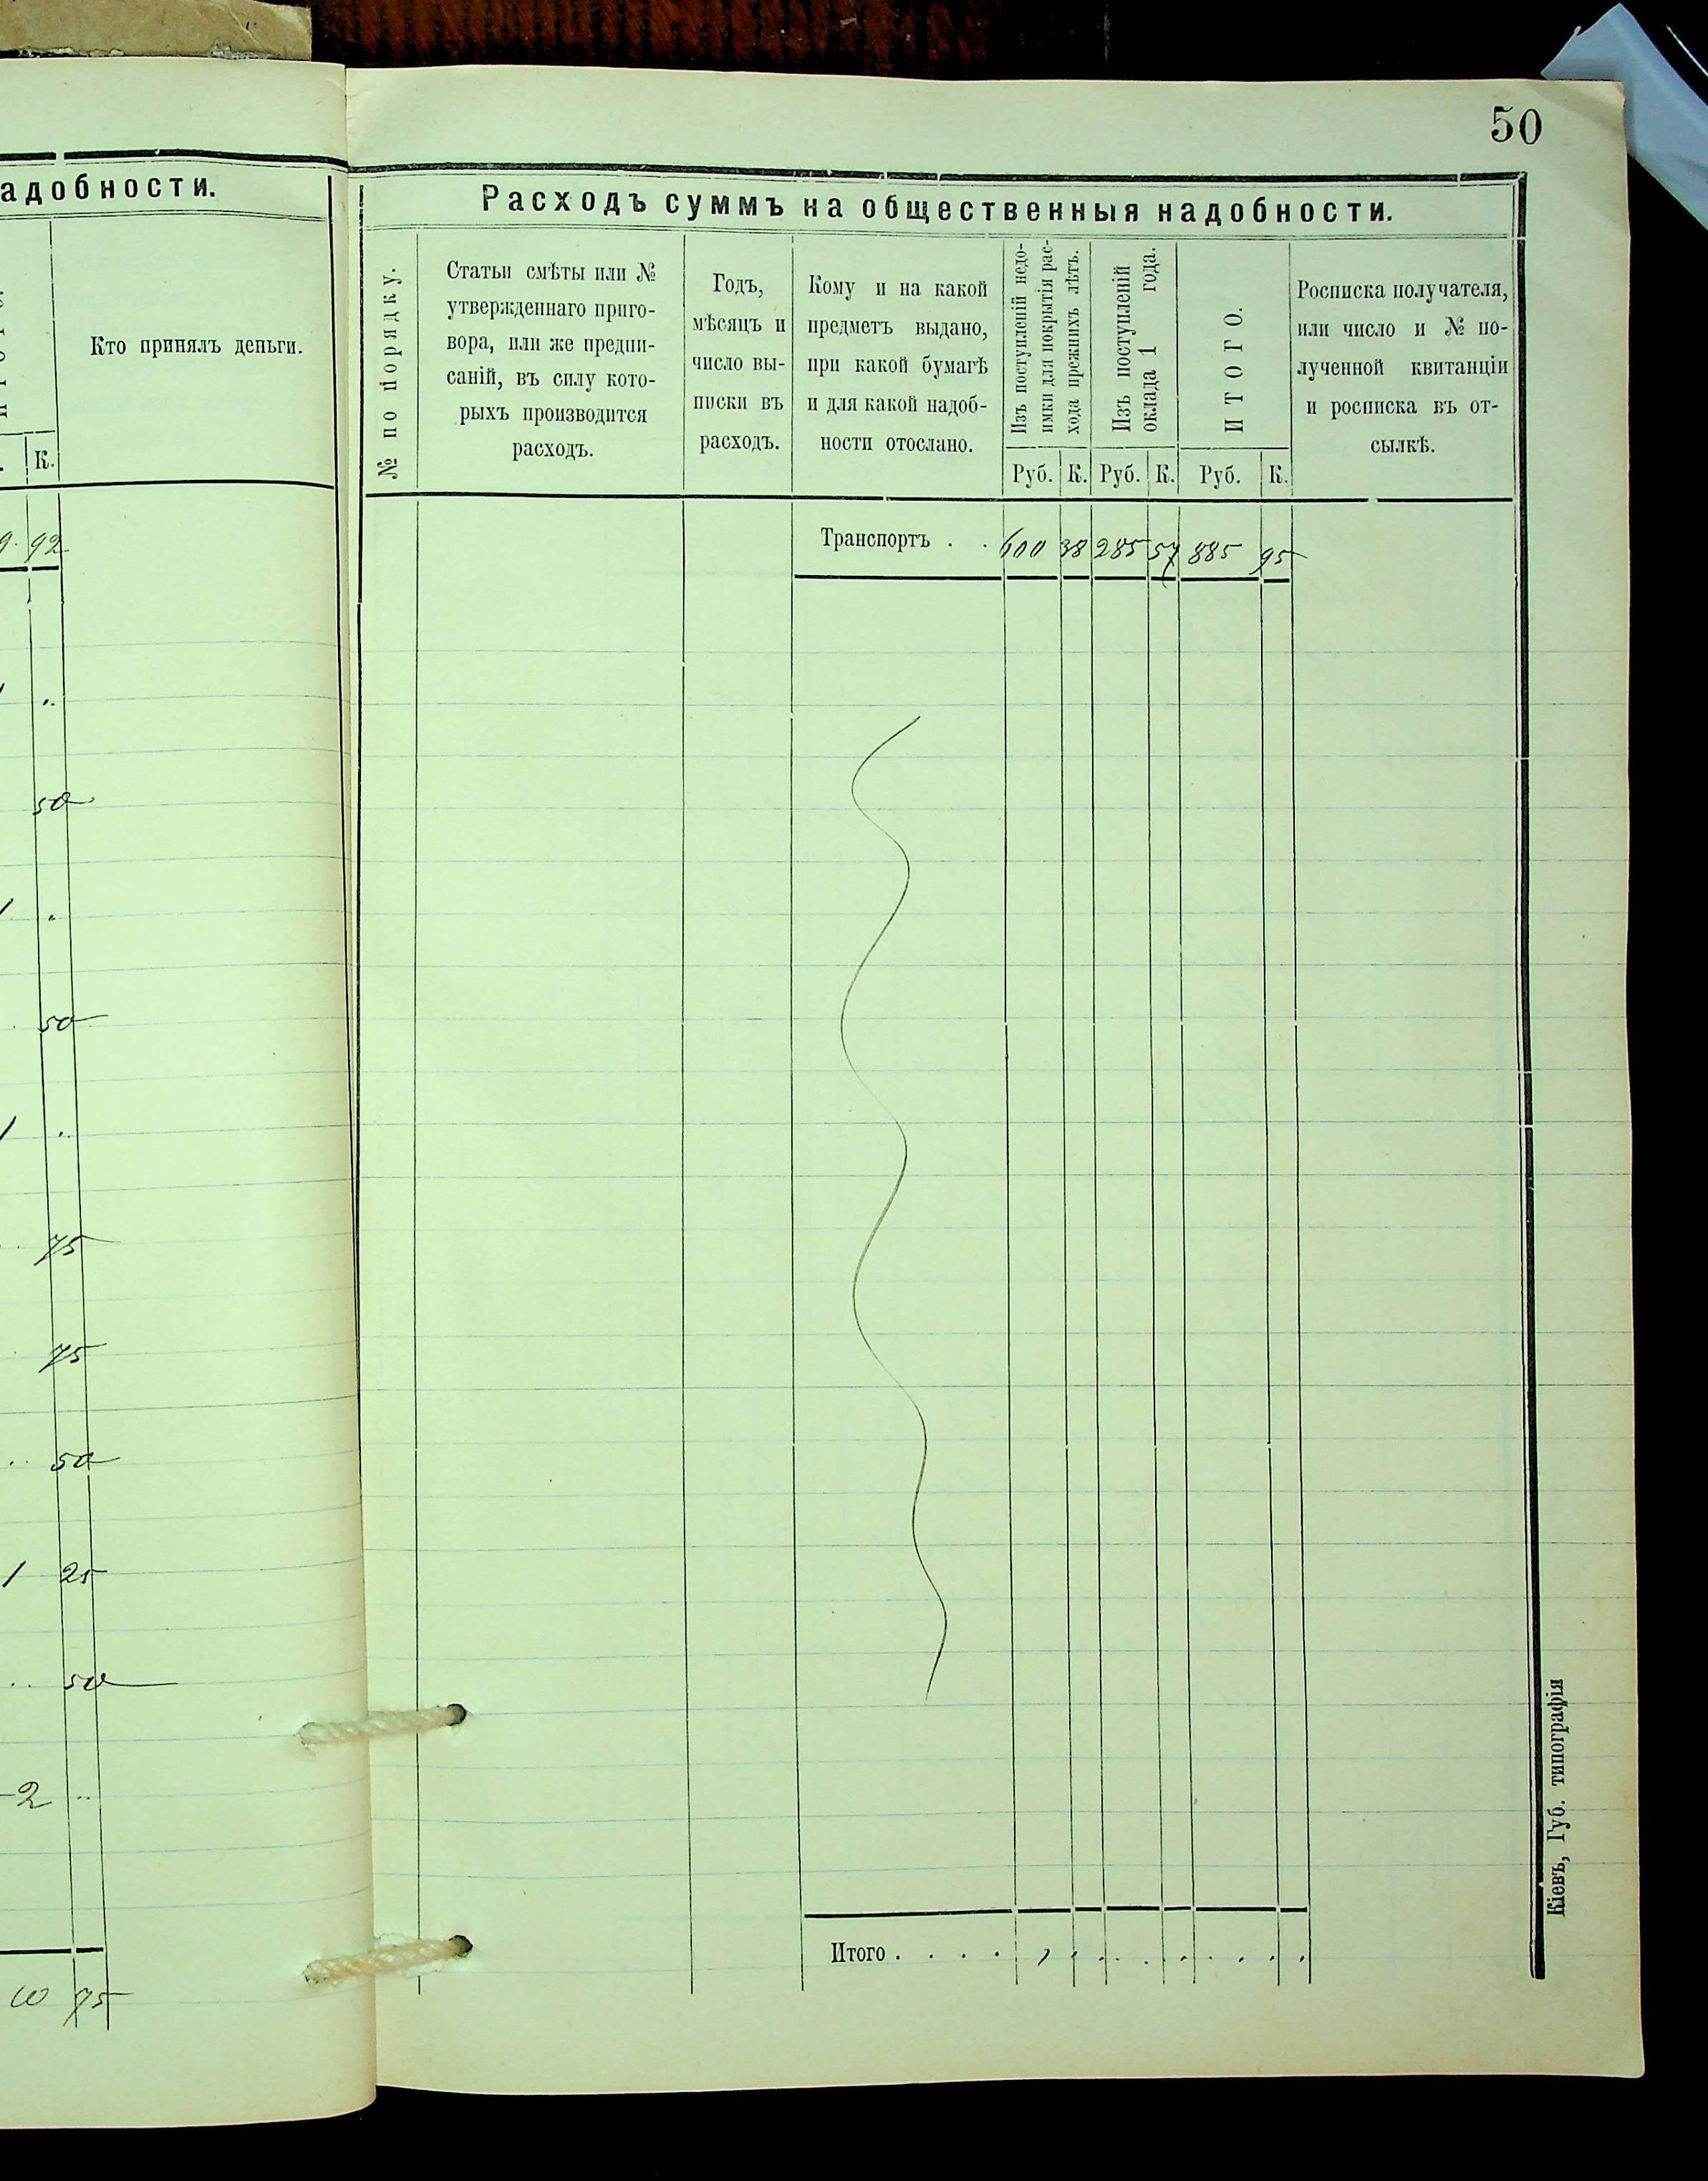 50
адобности.
К.
Кто принялъ деньги.
92
50
50
75
75
50
1 25
50
2
75
Расходъ суммъ на общественныя надобности.
№ по порядку.
Статьи смѣты или №
утвержденнаго приго-
вора, или же предпи-
саній, въ силу кото-
рыхъ производится
расходъ.
Годъ,
мѣсяцъ и
число вы-
писки въ
расходъ.
Кому и на какой
предметъ выдано,
при какой бумагѣ
и для какой надоб-
ности отослано.
Изъ поступленій недо-
имки для покрытія рас-
хода прежнихъ лѣтъ.
Изъ поступленій
оклада 1 года.
ИТОГО.
Росписка получателя,
или число и № по-
лученной квитанціи
и росписка въ от-
сылкѣ.
Руб. К. Руб. К. Руб. К.
Транспортъ . . 600 38 285 57 885 95
Итого . . . .
Кіевъ, Губ. типографія